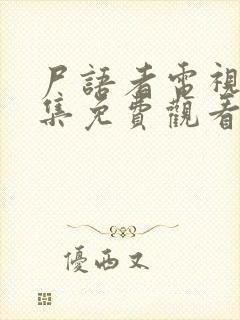 尸語者電視
集免費觀看
優西又